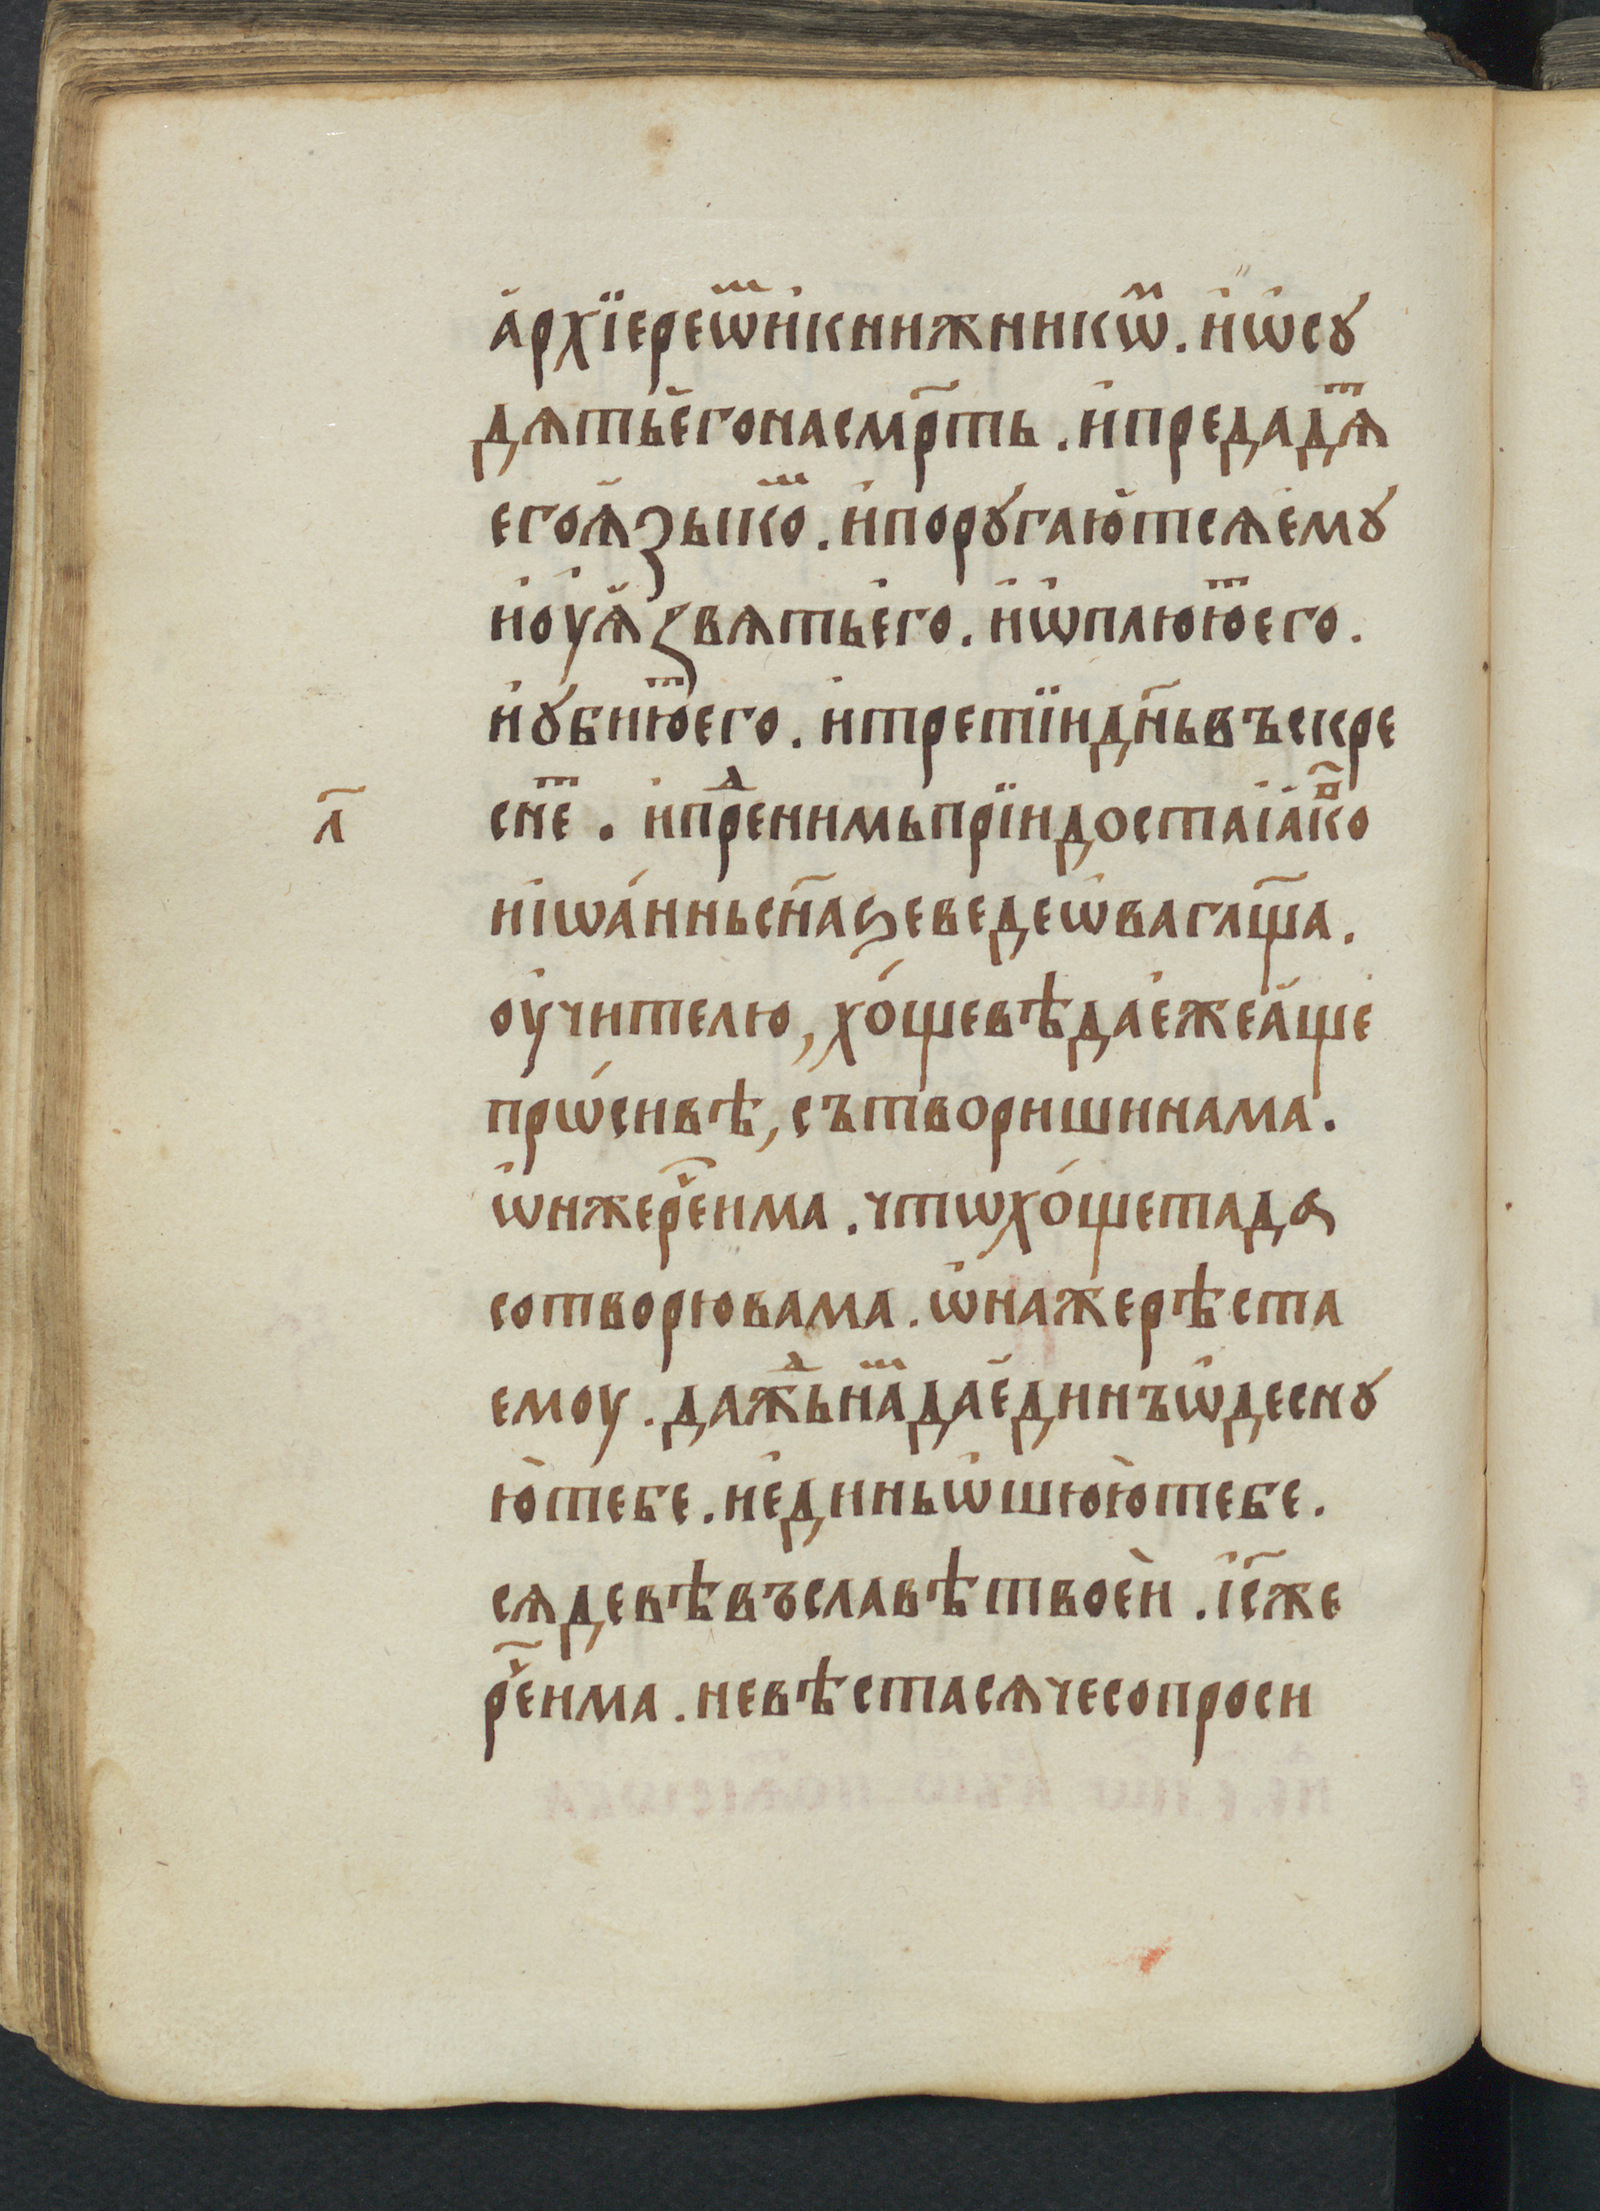 а҆рхїереѡⷨ и҆книжникѡⷨ. и҆ѡ҆сꙋ
дѧтье҆гонасмр҃ть. и҆предадѧⷮ
егоѧ҆зыкоⷨ. и҆порꙋгаю҆тсѧе҆мꙋ
и҆оу҆ѧ҆звѧтье҆го. и҆ѡ҆плююⷮего.
и҆ꙋбиюⷮего. и҆третїидн҃ьвъскре
л҃
снеⷮ. и҆преⷣнимьпрїидостаі҆а҆коⷡ҇
иі҆ѡа́нньсн҃аѕеведеѡ҆ваглш҃а.
оу҆чителю, хо́щевѣдае҆жеа҆ще
прѡ́сивѣ, сътворишинама.
ѡ҆нжереⷱ҇има. чтѡхо́щетада
сотворювама. ѡ҆нажерѣста
емоу. даⷤдьнаⷨдае҆динъѡ҆деснꙋ
ю҆̀тебе. ие҆диньѡ҆шюю̀тебе.
сѧдевѣвъславѣтвоеѝ. і҆с҃же
реⷱ҇има. невѣстасѧчесопроси